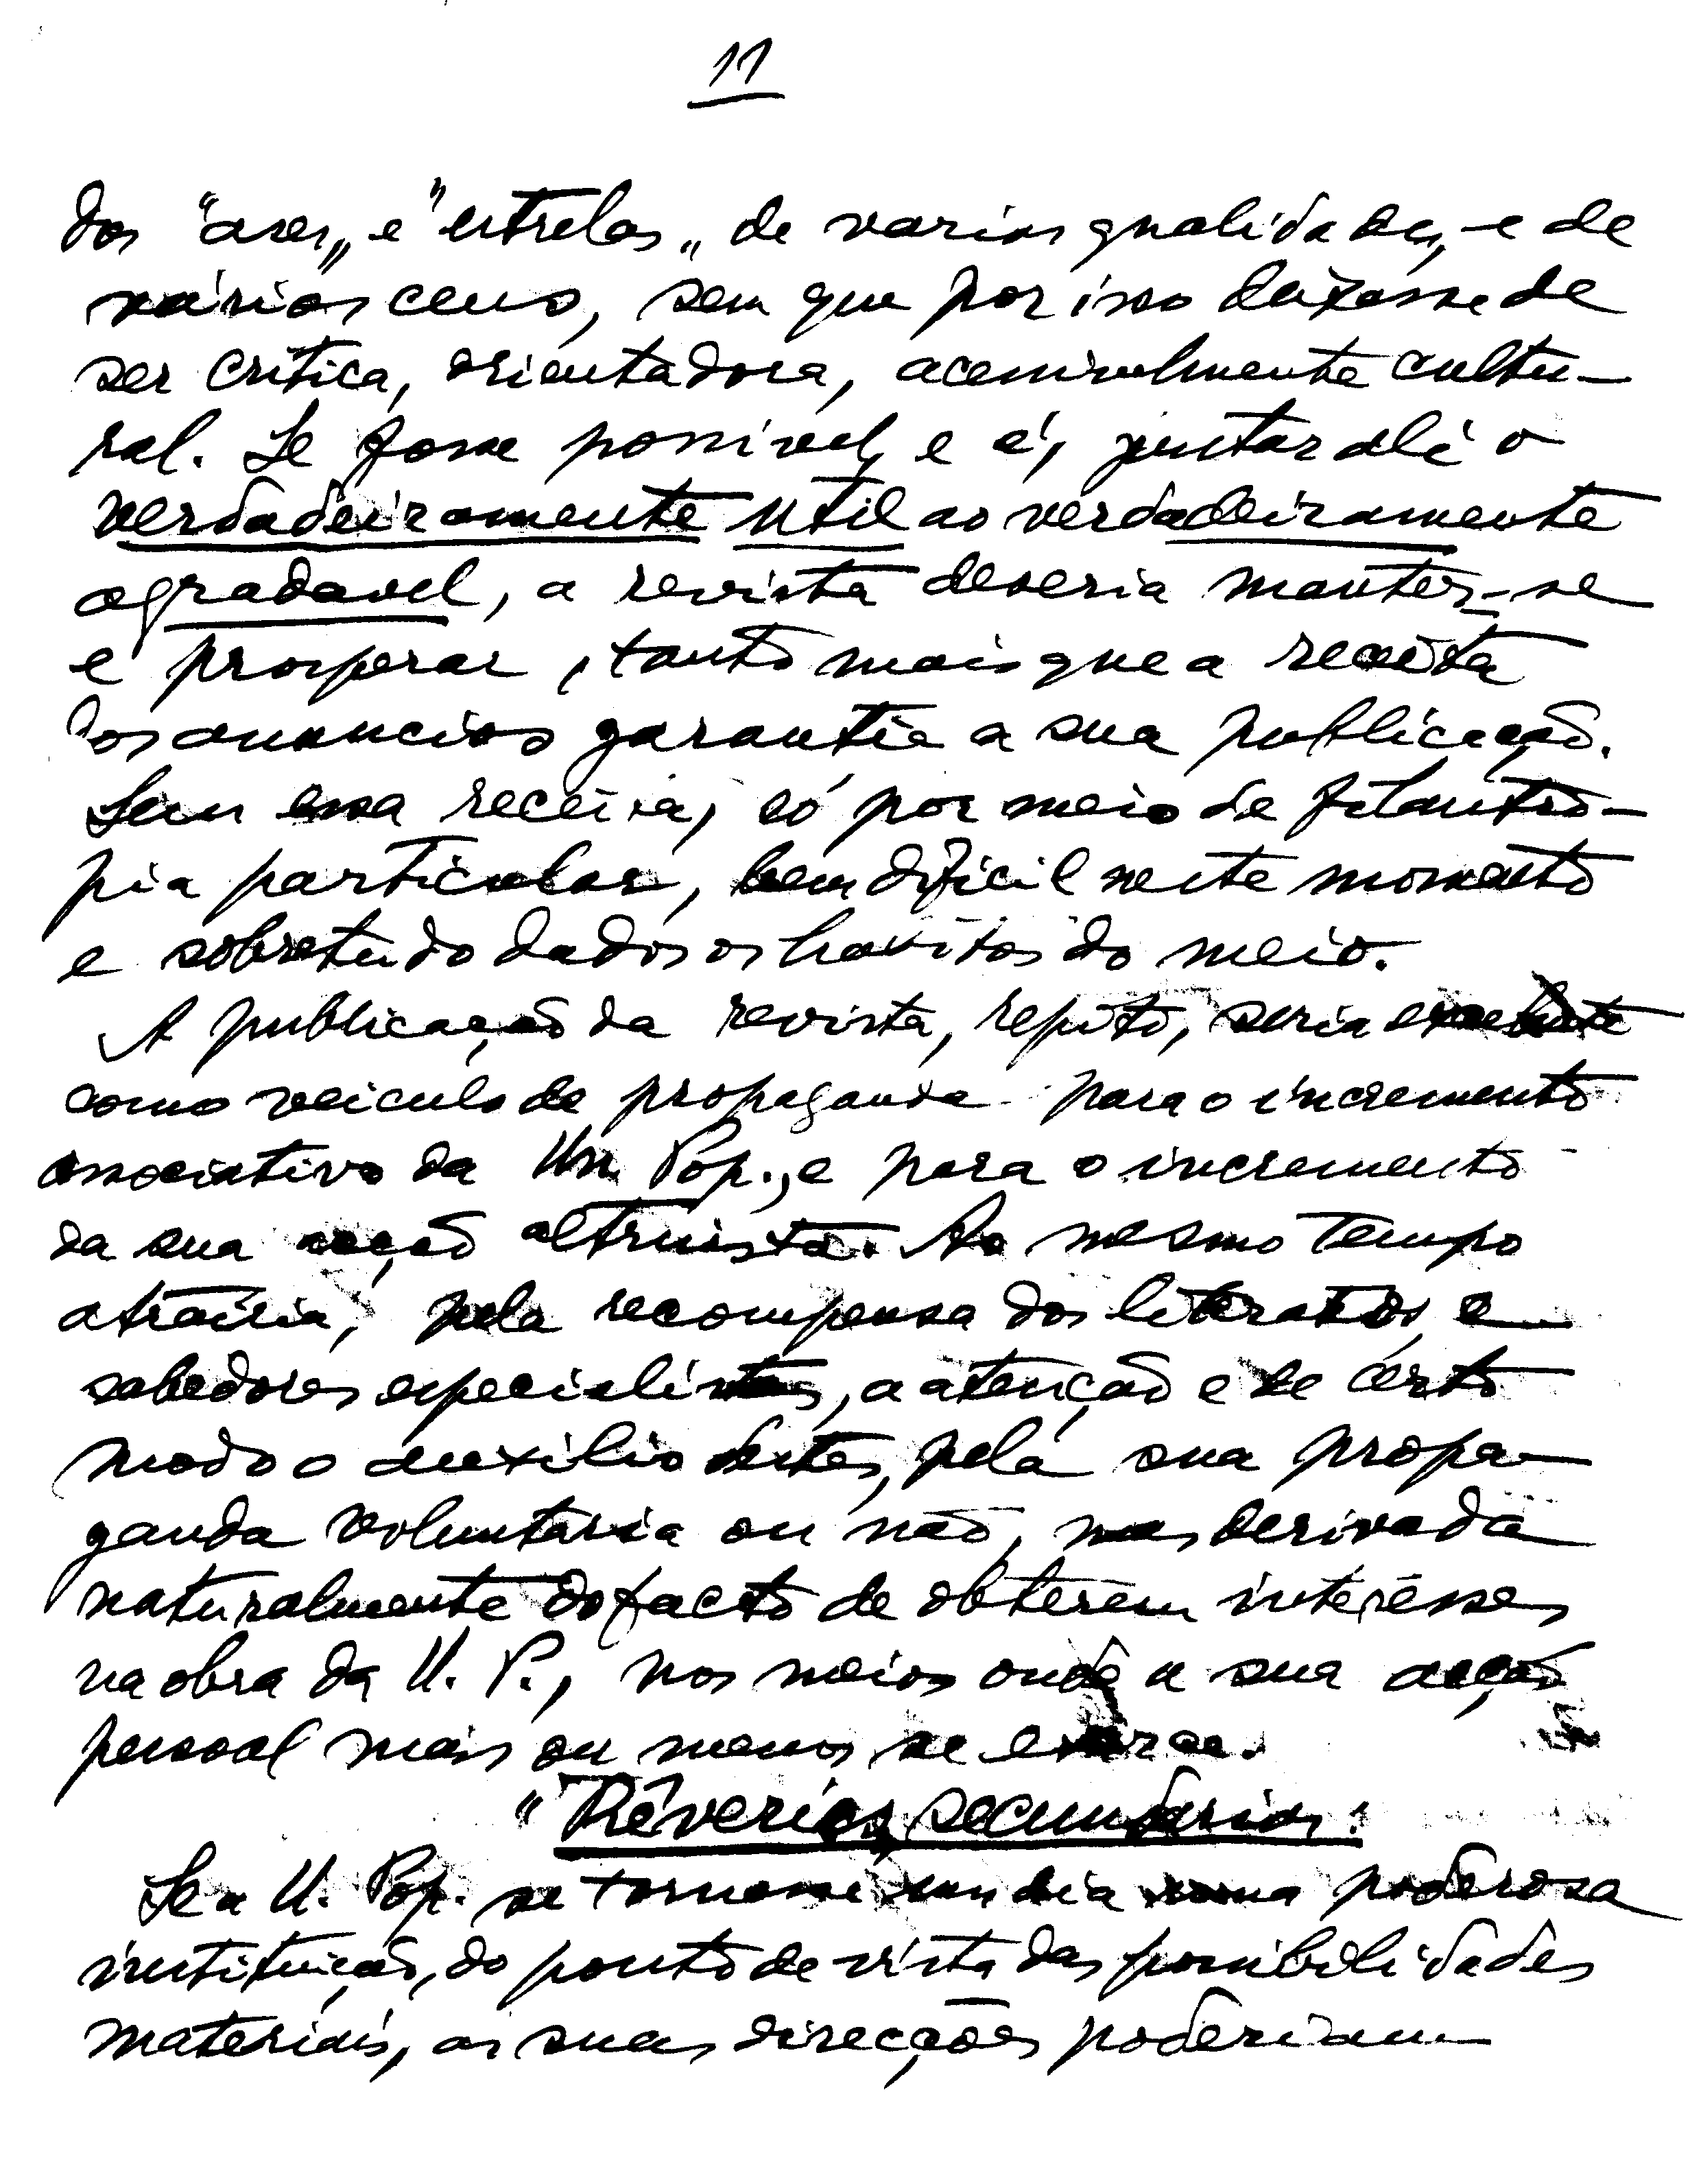 11
dos "ases" e "estrelas" de varias qualidades, e de
vários ceus, sem que por isso deixasse de
ser crítica, orientadora, acessivelmente cultu-
ral. Se fosse possivel, e é, juntar ali o
verdadeiramente util ao verdadeiramente
agradavel, a revista deveria manter-se
e prosperar, tanto mais que a receita
dos anuncios garantia a sua publicação.
Sem essa receita, só por meio de filantro-
pia particular, bem dificil neste momento
e sobretudo dados os havitos do meio.
A publicação da revista, repito, seria excelente
como veiculo de propaganda para o incremento
associativo da Un. Pop., e para o incremento
da sua acção altruista. Ao mesmo tempo
atrairia, pela recompensa dos literatos e
sabedores especialistas, a atenção e de certo
modo o auxilio destes, pela sua propa-
ganda voluntária ou não, mas derivada
naturalmente do facto de obterem interesses
na obra da U. P., nos meios onde a sua acção
pessoal mais ou menos se exerce.
"Rêveries" secundarias:
Se a U. Pop. se tornasse um dia uma poderosa
instituição, do ponto de vista das possibilidades
materiais, as suas direcções poderiam